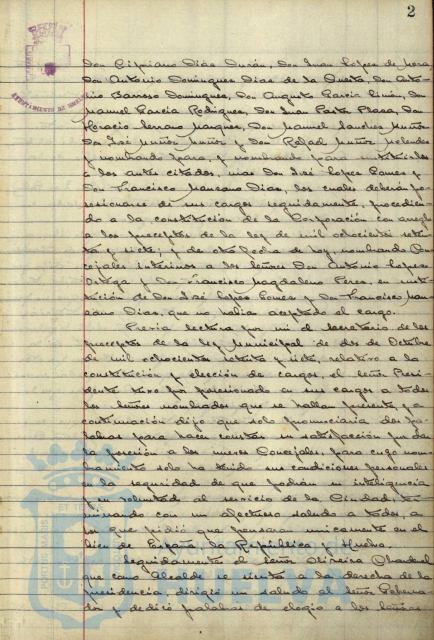 2
Don Cipriano Dias Durán, Don Juan Lopes de Mora,
Don Antonio Domingues Dias de la Questa, Don Anto-
nio Barroso Domingues, Don Augusto Garcia, Don
Manuel Garcia Rodrigues, Don Juan Plaza, Don
Horacio Serrano Marques, Don Manuel Sanches Muñoz,
Don José Muñoz Muñoz y Don Rafael Muñoz
y nombrando para, y nombrando para sustituirlos
a los antes citados, mas Don José Lopes Gomes y
Don Francisco Manzano Dias, los cuales deberán po-
sesionarse de sus cargos seguidamente, procedien-
do a la constitución de la Corporación con arreglo
a los preceptos de la ley de mil ochocientos seten-
ta y siete; y de otra fecha de hoy, nombrando Con-
cejales interinos a los señores Don Antonio Lopes
Ortega y Don Francisco Magdaleno Peres, en susti-
tución de Don José Lopes Gomes y Don Francisco Man-
zano Dias, que no habian aceptado el cargo.
Previa lectura por mi el Secretario de los
preceptos de la ley Municipal de dos de Octubre
de mil ochocientos setenta y siete, relativo a la
constitución y elección de cargos, el señor Presi-
dente tuvo por posesionado en sus cargos a todos
los señores nombrados que se hallan presente, y a
continuación dijo que solo pronunciaria dos pa-
labras para hacer constar su satisfacción por dar
la posesión a los nuevos Concejales para cuyo nom-
bramiento solo ha tenido sus condiciones personales
en la seguridad de que podrán su inteligencia
y su voluntad al servicio de la Ciudad, ter-
minando con un afectuoso saludo a todos, a
los que pidió que pensaran unicamente en el
bien de España, la República y Huelva.
Seguidamente el señor Oliveira Chardenal
que como Alcalde se sienta a la derecha de la
presidencia, dirigió un saludo al señor Goberna-
dor y dedicó palabras de elogio a los señores
PORTUS MARIS ET TERRAE